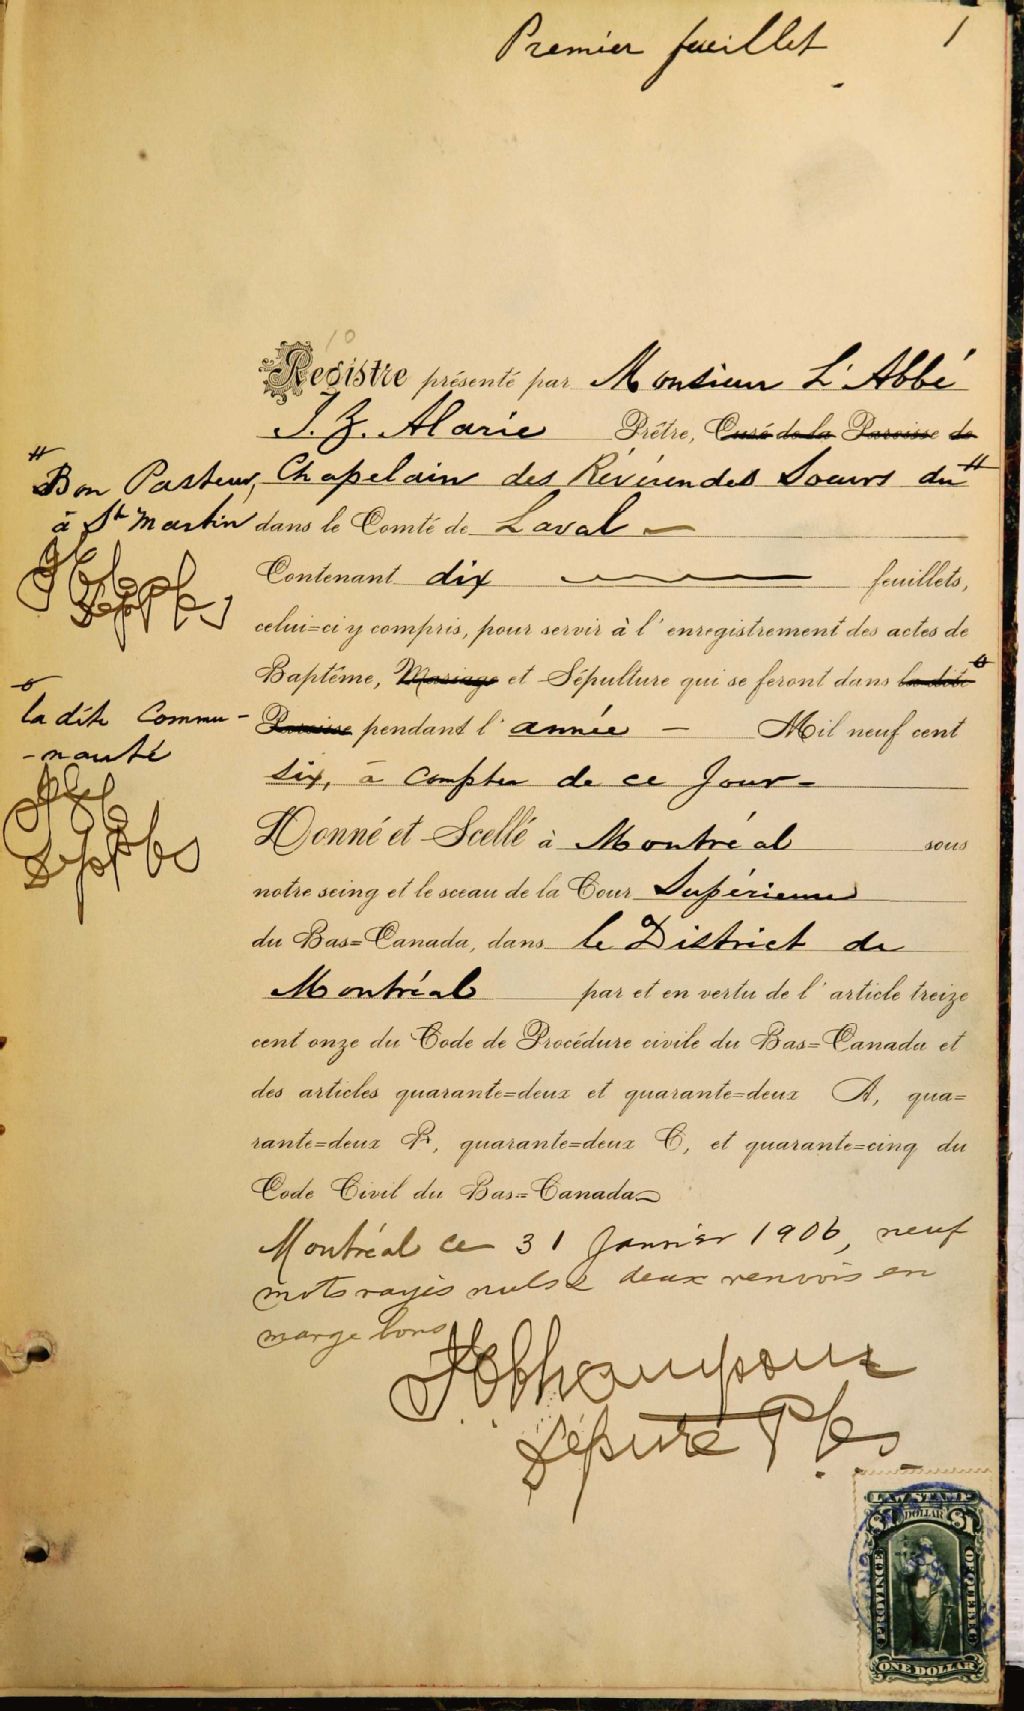 Premier fueillet 1
10
Registre présenté par Monsieur L'Abbé
J. Z. Alarie Prêtre, Curé de la Paroisse de
# Bon Pasteur, Chapelain des Révérendes Soeurs du #
à St Martin dans le Comté de Laval —
Contenant dix feuillets,
celui=ci y compris, pour servir à l'enregistrement des actes de
Baptême, Mariage et Sépulture qui se feront dans la dite o
o
la dite Commu-
-nauté
Paroisse pendant l'année — Mil neuf cent
six, à compter de ce jour-
Donné et Scellé à Montréal sous
notre seing et le sceau de la Cour Supérieure
du Bas=Canada, dans le District de
Montréal par et en vertu de l'article treize
cent onze du Code de Procédure civile du Bas=Canada et
des articles quarante=deux et quarante=deux A, qua=
rante=deux B, quarante=deux C, et quarante=cinq du
Code Civil du Bas=Canada
Montréal ce 31 Janvier 1906, neuf
mots rayés nuls & deux renvois en
marge bons
Député P
LAW STAMP
$1 DOLLAR $1
PROVINCE
QUEBEC
ONE DOLLAR